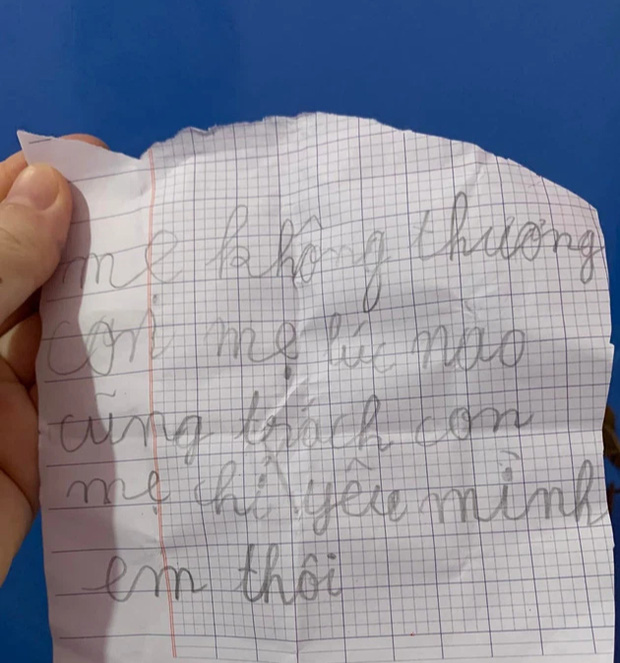 mẹ không thương
con mẹ lúc nào
cũng trách con
mẹ chỉ yêu mình
em thôi